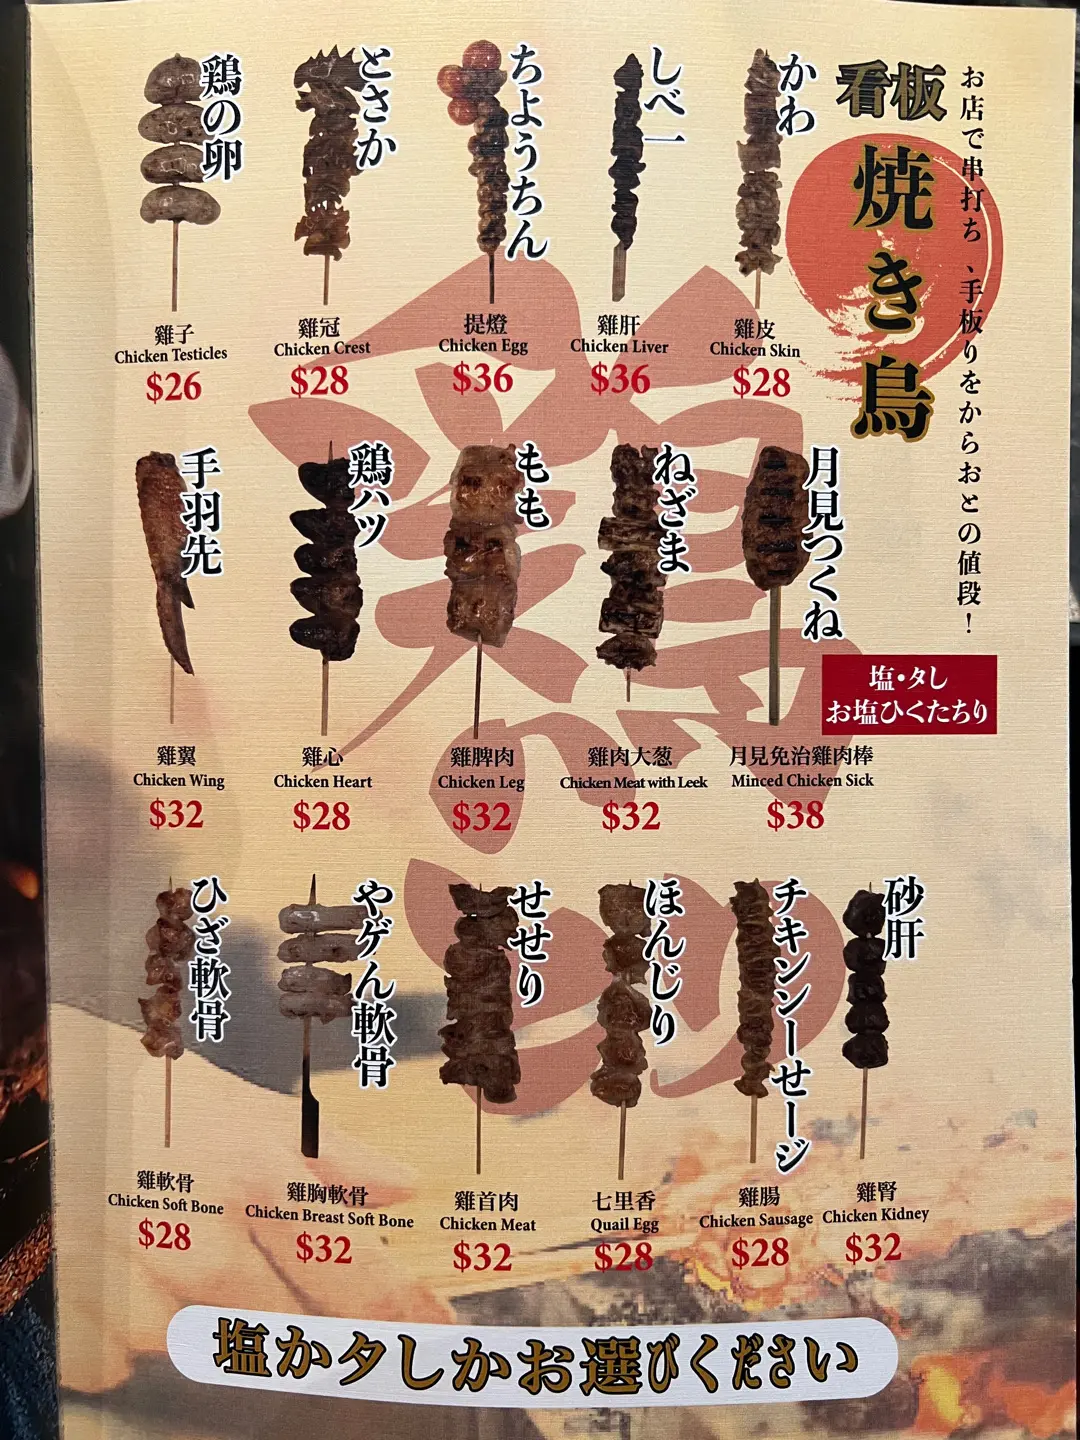 お店で串打ち、手板りをからおとの値段！
看板
焼き鳥
塩・タし
お塩ひくたちり
かわ
雞皮
Chicken Skin
$28
しべー
雞肝
Chicken Liver
$36
ちようちん
提燈
Chicken Egg
$36
とさか
雞冠
Chicken Crest
$28
鶏の卵
雞子
Chicken Testicles
$26
月見つくね
月見免治雞肉棒
Minced Chicken Sick
$38
ねざま
雞肉大葱
Chicken Meat with Leek
$32
もも
雞脾肉
Chicken Leg
$32
鶏ハツ
雞心
Chicken Heart
$28
手羽先
雞翼
Chicken Wing
$32
砂肝
雞腎
Chicken Kidney
$32
チキンシーせージ
雞腸
Chicken Sausage
$28
ほんじり
七里香
Quail Egg
$28
せせり
雞首肉
Chicken Meat
$32
やゲん軟骨
雞胸軟骨
Chicken Breast Soft Bone
$32
ひざ軟骨
雞軟骨
Chicken Soft Bone
$28
塩かタしかお選びください